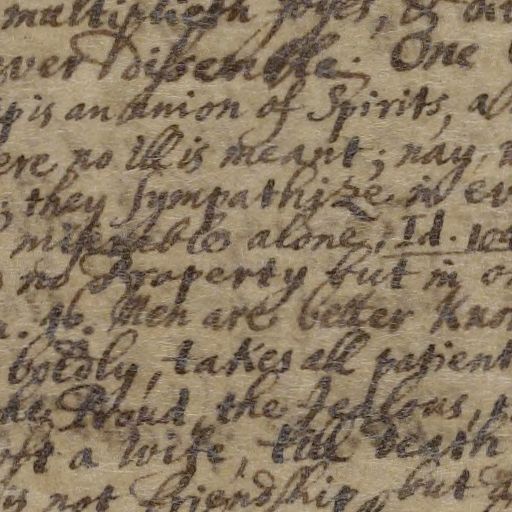 multiplieth joyes, &
ever dissemble. One
p is an Union of Spirits, a
ere no ill is meant; nay,
; they sympathize in ev
miserable alone. Id. 10
no Property but in
. 96. Men are better kno
boldly, takes all patient
the Proud, the Jealous,
oft a Wife, till Death
is not friendship, but